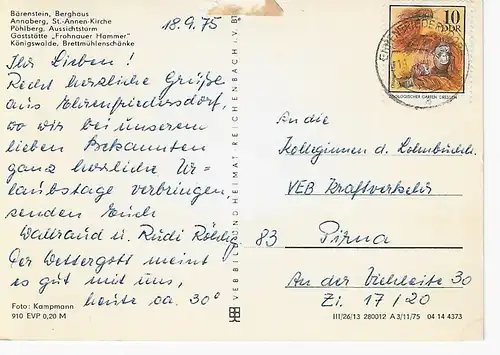 Bärenstein, Berghaus
Annaberg, St.-Annen-Kirche
Pöhlberg, Aussichtsturm
Gaststätte „Frohnauer Hammer"
Königswalde, Brettmühlenschänke
18.9.75
Ihr Lieben!
Recht herzliche Grüße
aus Ehrenfriedersdorf,
wo wir bei unserem
lieben Bekannten
ganz herrliche Ur=
laubstage verbringen
senden Euch
Waltraud u. Rudi
Der Wettergott meint
es gut mit uns,
heute ca. 30°
Foto: Kampmann
910 EVP 0,20 M
VEB BILD UND HEIMAT REICHENBACH i. V.
10
DDR
ZOOLOGISCHER GARTEN
An die
Kolleginnen d. Lohnbuchh.
VEB Kraftverkehr
83 Pirna
An der Viehleite 30
Zi. 17/20
III/26/13 280012 A 3/11/75 04 14 4373